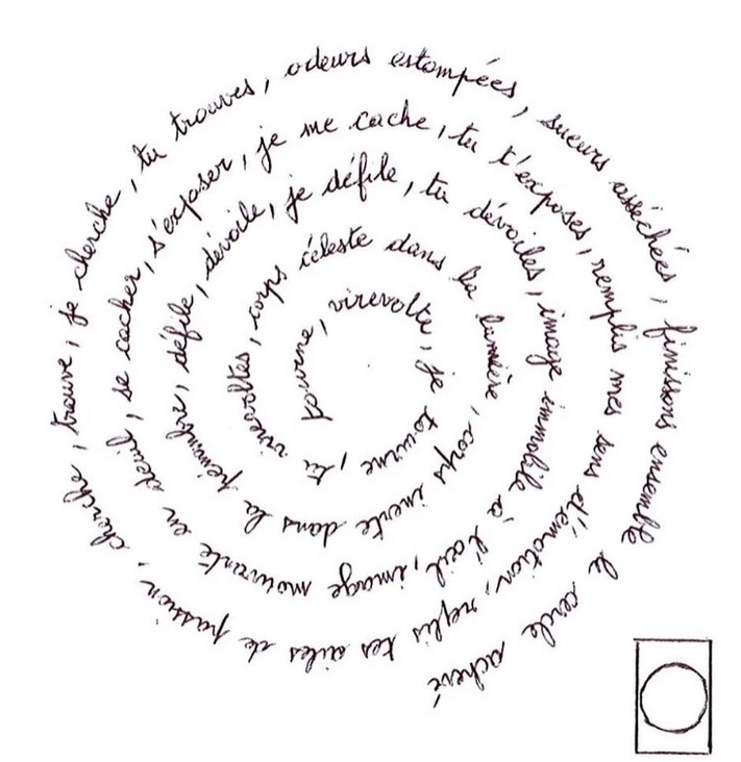 tourne, virevolte, je tourne, tu virevoltes, corps céleste dans la lumière, corps inerte dans la pénombre, défile, dévoile, je défile, tu dévoiles, image immobile à l'œil, image mouvante en deuil, se cacher, s'exposer, je me cache, tu t'exposes, remplis mes sens d'émotion, replis tes ailes de passion, cherche, trouve, je cherche, tu trouves, odeurs estompées, sueurs asséchées, finissons ensemble le cercle achevé